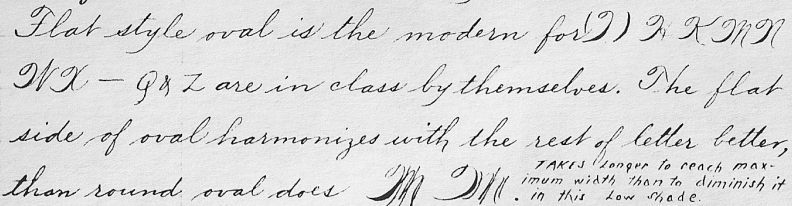 Flat style oval is the modern for (I) H K M N
W X — Q & Z are in class by themselves. The flat
side of oval harmonizes with the rest of letter better,
than round oval does M M.
TAKES longer to reach max-
imum width than to diminish it
in this low shade.